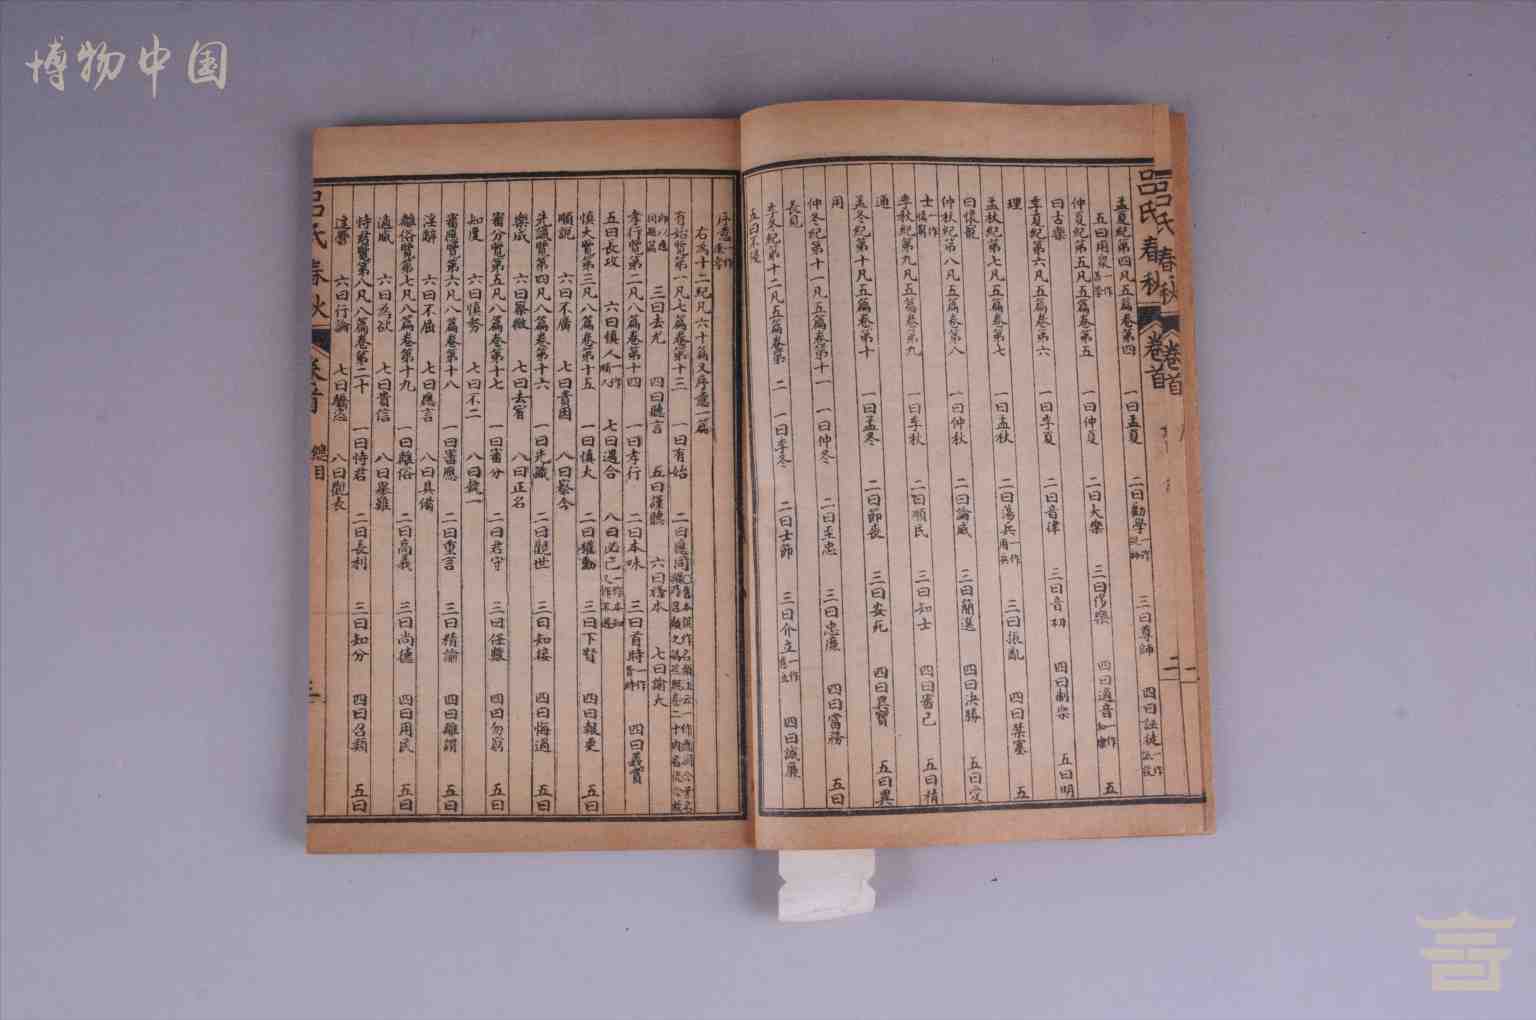 博物中国
呂氏春秋 卷首
二
孟夏紀第四凡五篇卷第四 一曰孟夏 二曰勸學一作 三曰尊師 四曰誣徒一作詆役
五曰用衆一作善學
仲夏紀第五凡五篇卷第五 一曰仲夏 二曰大樂 三曰侈樂 四曰適音一作和樂 五
曰古樂
季夏紀第六凡五篇卷第六 一曰季夏 二曰音律 三曰音初 四曰制樂 五曰明
理
孟秋紀第七凡五篇卷第七 一曰孟秋 二曰蕩兵一作用兵 三曰振亂 四曰禁塞 五
曰懷寵
仲秋紀第八凡五篇卷第八 一曰仲秋 二曰論威 三曰簡選 四曰決勝 五曰愛
士一作慎窮
季秋紀第九凡五篇卷第九 一曰季秋 二曰順民 三曰知士 四曰審己 五曰精
通
孟冬紀第十凡五篇卷第十 一曰孟冬 二曰節喪 三曰安死 四曰異寶 五曰異
用
仲冬紀第十一凡五篇卷第十一 一曰仲冬 二曰至忠 三曰忠廉 四曰當務 五曰
長見
季冬紀第十二凡五篇卷第十二 一曰季冬 二曰士節 三曰介立一作立意 四曰誠廉
五曰不侵
序意一作廉孝
右為十二紀凡六十篇又序意一篇
有始覽第一凡七篇卷第十三 一曰有始 二曰應同
三曰去尤 四曰聽言 五曰謹聽 六曰務本 七曰諭大
孝行覽第二凡八篇卷第十四 一曰孝行 二曰本味 三曰首時一作胥時 四曰義賞
五曰長攻 六曰慎人一作順人 七曰遇合 八曰必己一作本知一作不遇
慎大覽第三凡八篇卷第十五 一曰慎大 二曰權勳 三曰下賢 四曰報更 五曰
順說 六曰不廣 七曰貴因 八曰察今
先識覽第四凡八篇卷第十六 一曰先識 二曰觀世 三曰知接 四曰悔過 五曰
樂成 六曰察微 七曰去宥 八曰正名
審分覽第五凡八篇卷第十七 一曰審分 二曰君守 三曰任數 四曰勿躬 五曰
知度 六曰慎勢 七曰不二 八曰執一
審應覽第六凡八篇卷第十八 一曰審應 二曰重言 三曰精諭 四曰離謂 五曰
淫辭 六曰不屈 七曰應言 八曰具備
離俗覽第七凡八篇卷第十九 一曰離俗 二曰高義 三曰尚德 四曰用民 五曰
適威 六曰為欲 七曰貴信 八曰舉難
恃君覽第八凡八篇卷第二十 一曰恃君 二曰長利 三曰知分 四曰召類 五曰
達鬱 六曰行論 七曰驕恣 八曰觀表
呂氏春秋 卷首 總目 三